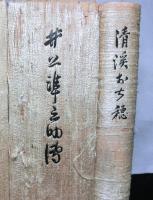 井上準之助傳
清溪おち穂